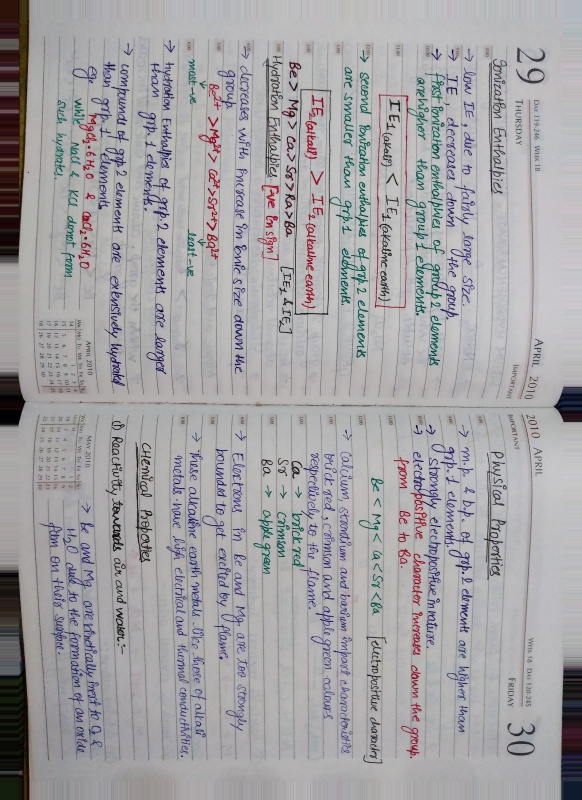 29
THURSDAY
DAY 119-246 WEEK 18
APRIL 2010
IMPORTANT
Ionization Enthalpies
→ low IE, due to fairly large size.
→ IE, decreases down the group.
→ first ionization enthalpies of group 2 elements
are higher than group 1 elements.
IE1 (alkali) < IE1 (alkaline earth)
→ second ionization enthalpies of grp 2 elements
are smaller than grp 1 elements.
IE2 (alkali) > IE2 (alkaline earth)
Be > Mg > Ca > Sr > Ra > Ba [IE1 & IE2]
Hydration Enthalpies [-ve in sign]
→ decreases with increase in ionic size down the
group.
Be2+ > Mg2+ > Ca2+ > Sr2+ > Ba2+
most -ve least -ve
→ hydration Enthalpies of grp 2 elements are larger
than grp 1 elements.
→ compounds of grp 2 elements are extensively hydrated
than grp 1 elements
eg. MgCl2.6H2O & CaCl2.6H2O
while NaCl & KCl donot form
such hydrates.
APRIL 2010
2010 APRIL
IMPORTANT
WEEK 18 DAY 120-245
FRIDAY
30
Physical Properties
→ m.p & b.p. of grp 2 elements are higher than
grp 1 elements.
→ strongly electropositive in nature.
→ electropositive character increases down the group.
from Be to Ba.
Be < Mg < Ca < Sr < Ba [electropositive character]
→ Calcium strontium and barium impart characteristic
brick red, crimson and apple green colours
respectively to the flame.
Ca → brick red
Sr → crimson
Ba → apple green
→ Electrons in Be and Mg are too strongly
bounded to get excited by flame.
→ these alkaline earth metals like those of alkali
metals have high electrical and thermal conductivities.
Chemical Properties
(i) Reactivity towards air and water:-
→ Be and Mg are kinetically inert to O2 &
H2O due to the formation of an oxide
film on their surface.
MAY 2010